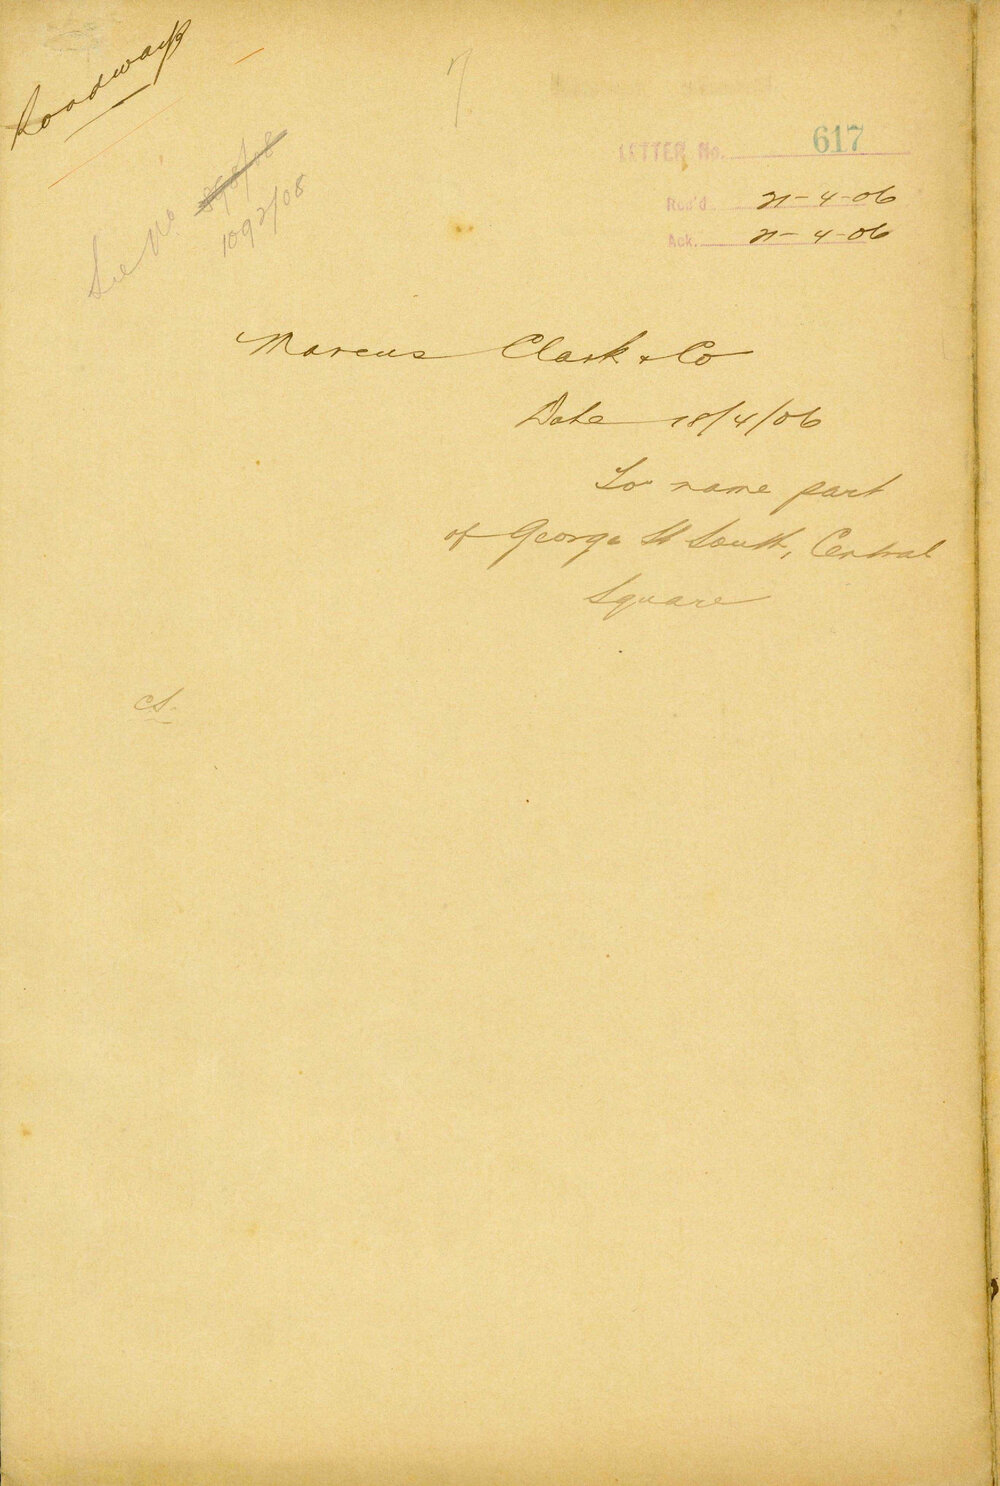 Roadways
7
LETTER No. 617
See No. 898/08
1092/08
Rec'd 21-4-06
Ack. 21-4-06
Marcus Clark & Co
Date 18/4/06
To name part
of George St South, Central
Square